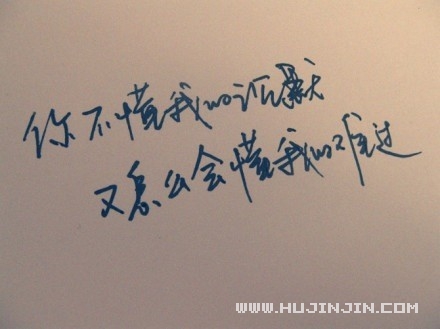 你不懂我的沉默
又怎么会懂我的难过
WWW.HUJINJIN.COM